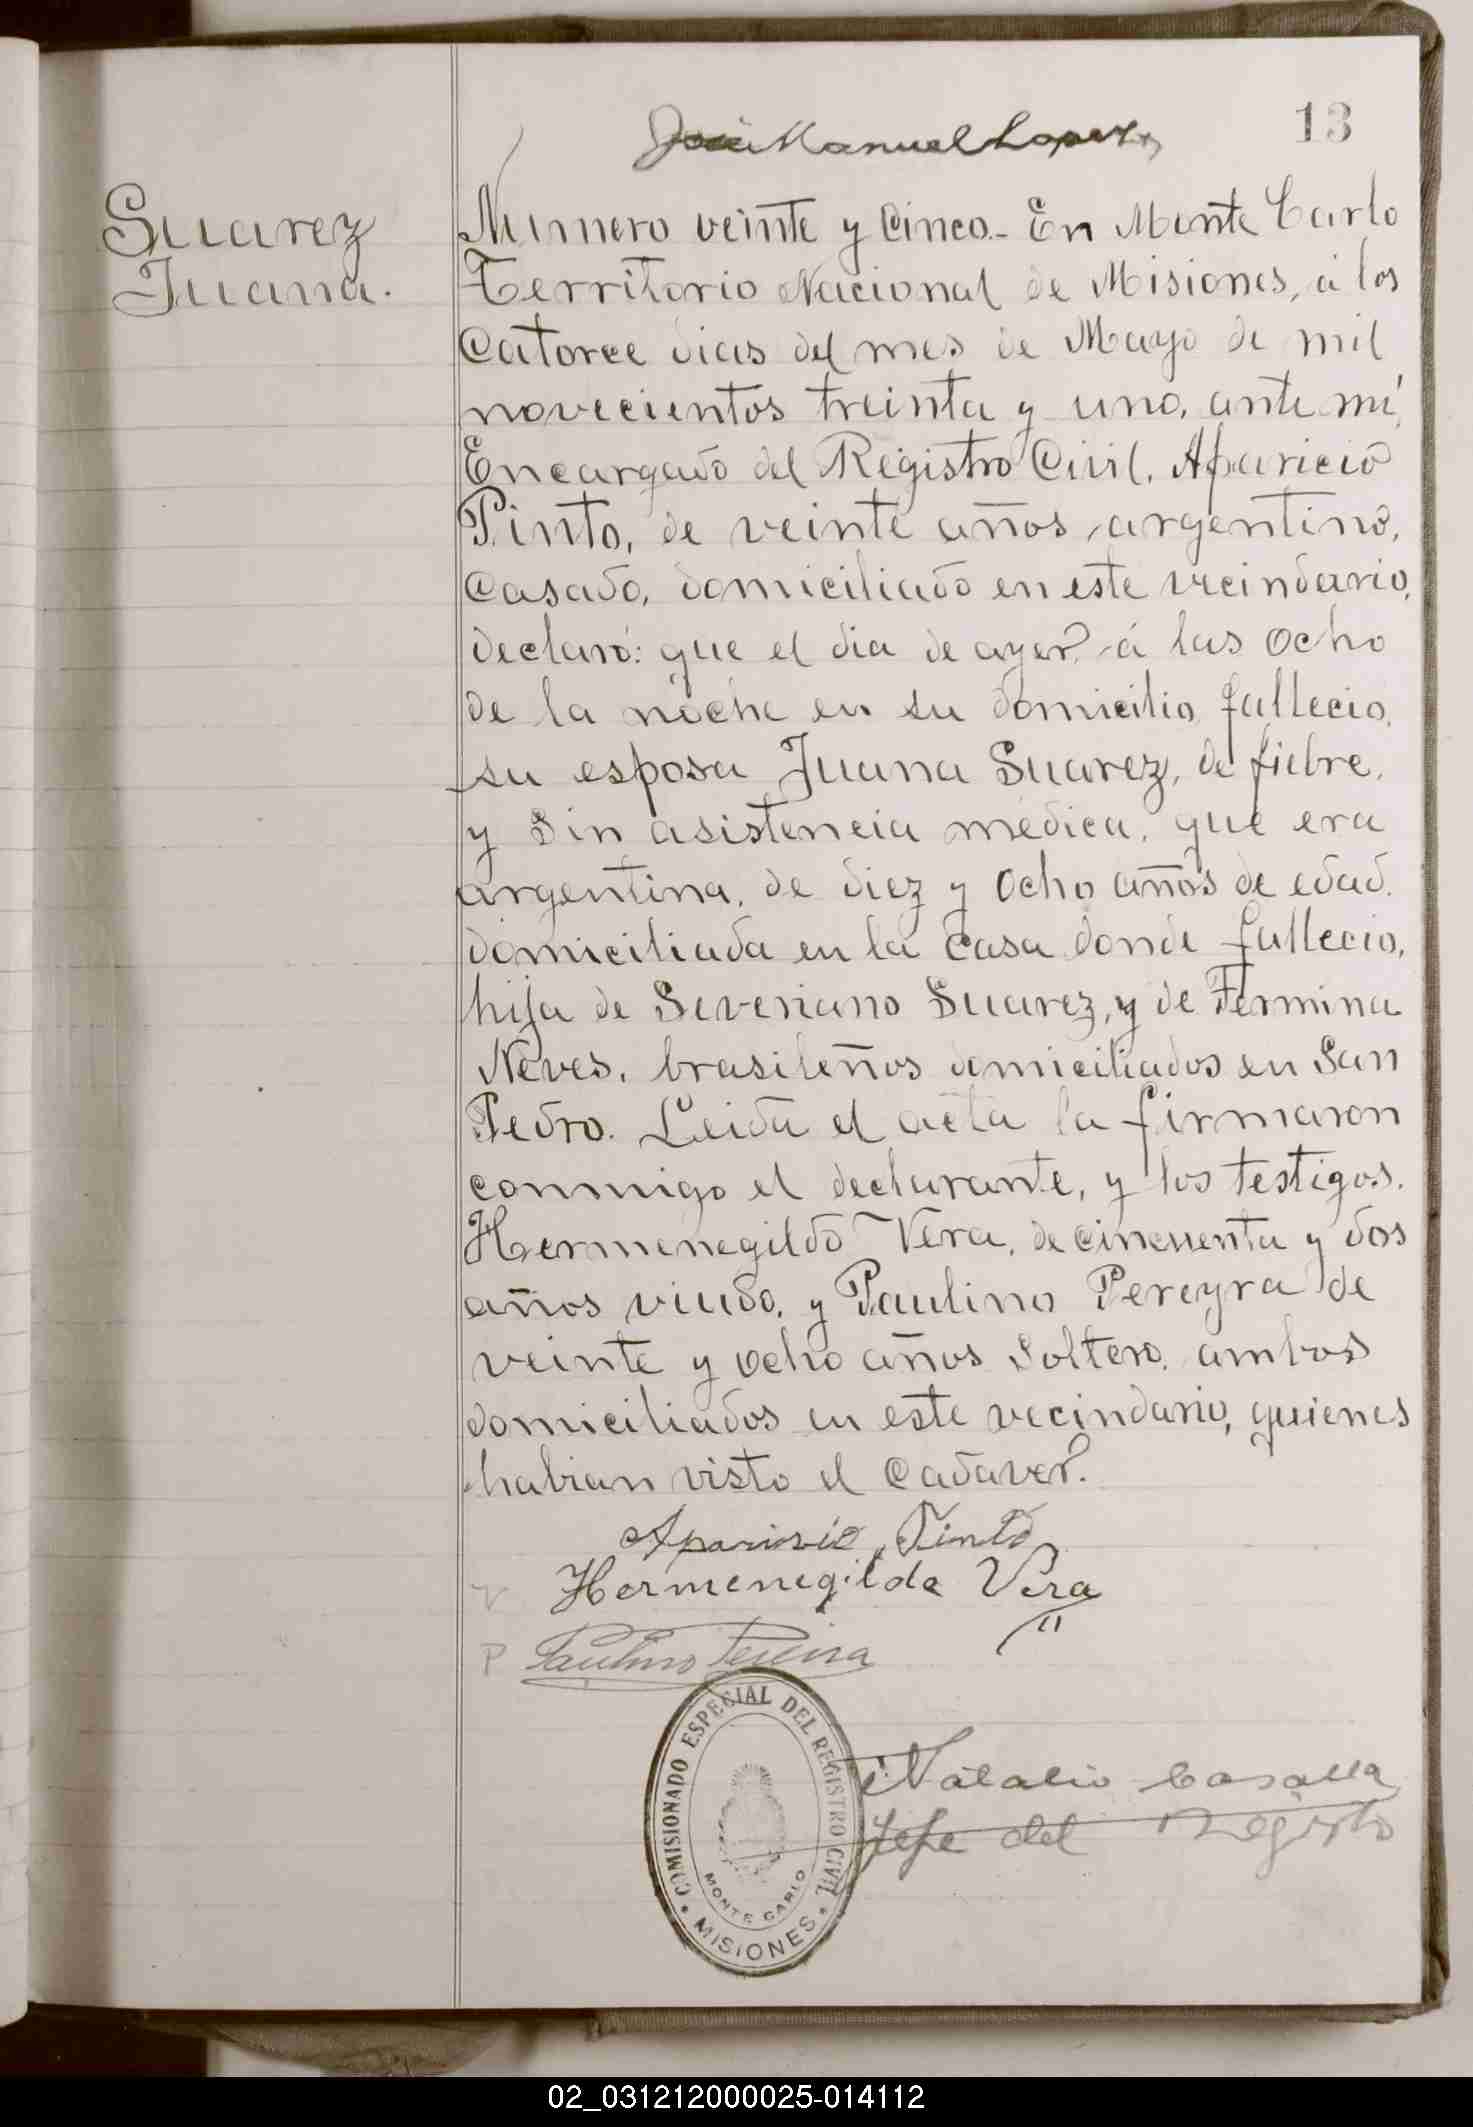 13
José Manuel Lopez
Suarez
Juana.
Numero veinte y Cinco.- En Monte Carlo
Territorio Nacional de Misiones, á los
Catorce dias del mes de Mayo de mil
novecientos treinta y uno, ante mí,
Encargado del Registro Civil, Aparicio
Pinto, de veinte años, argentino,
Casado, domiciliado en este vecindario,
declaró: que el dia de ayer, á las ocho
de la noche en su domicilio, fallecio,
su esposa Juana Suarez, de fiebre,
y Sin asistencia médica, que era
argentina, de diez y Ocho años de edad.
domiciliada en la Casa donde fallecio,
hija de Severiano Suarez, y de Fermina
Neves, brasileños domiciliados en San
Pedro. Leida el acta la firmaron
conmigo el declarante, y los testigos.
Hermenegildo Vera, de cincuenta y dos
años viudo, y Paulino Pereyra de
veinte y ocho años Soltero, ambos
domiciliados en este vecindario, quienes
habian visto el Cadaver.
Aparisio Pinto
V Hermenegilda Vera
P Paulino Pereira
Natalio Casalla
Jefe del Registo
COMISIONADO ESPECIAL DEL REGISTRO CIVIL
MONTE CARLO
MISIONES
02_031212000025-014112